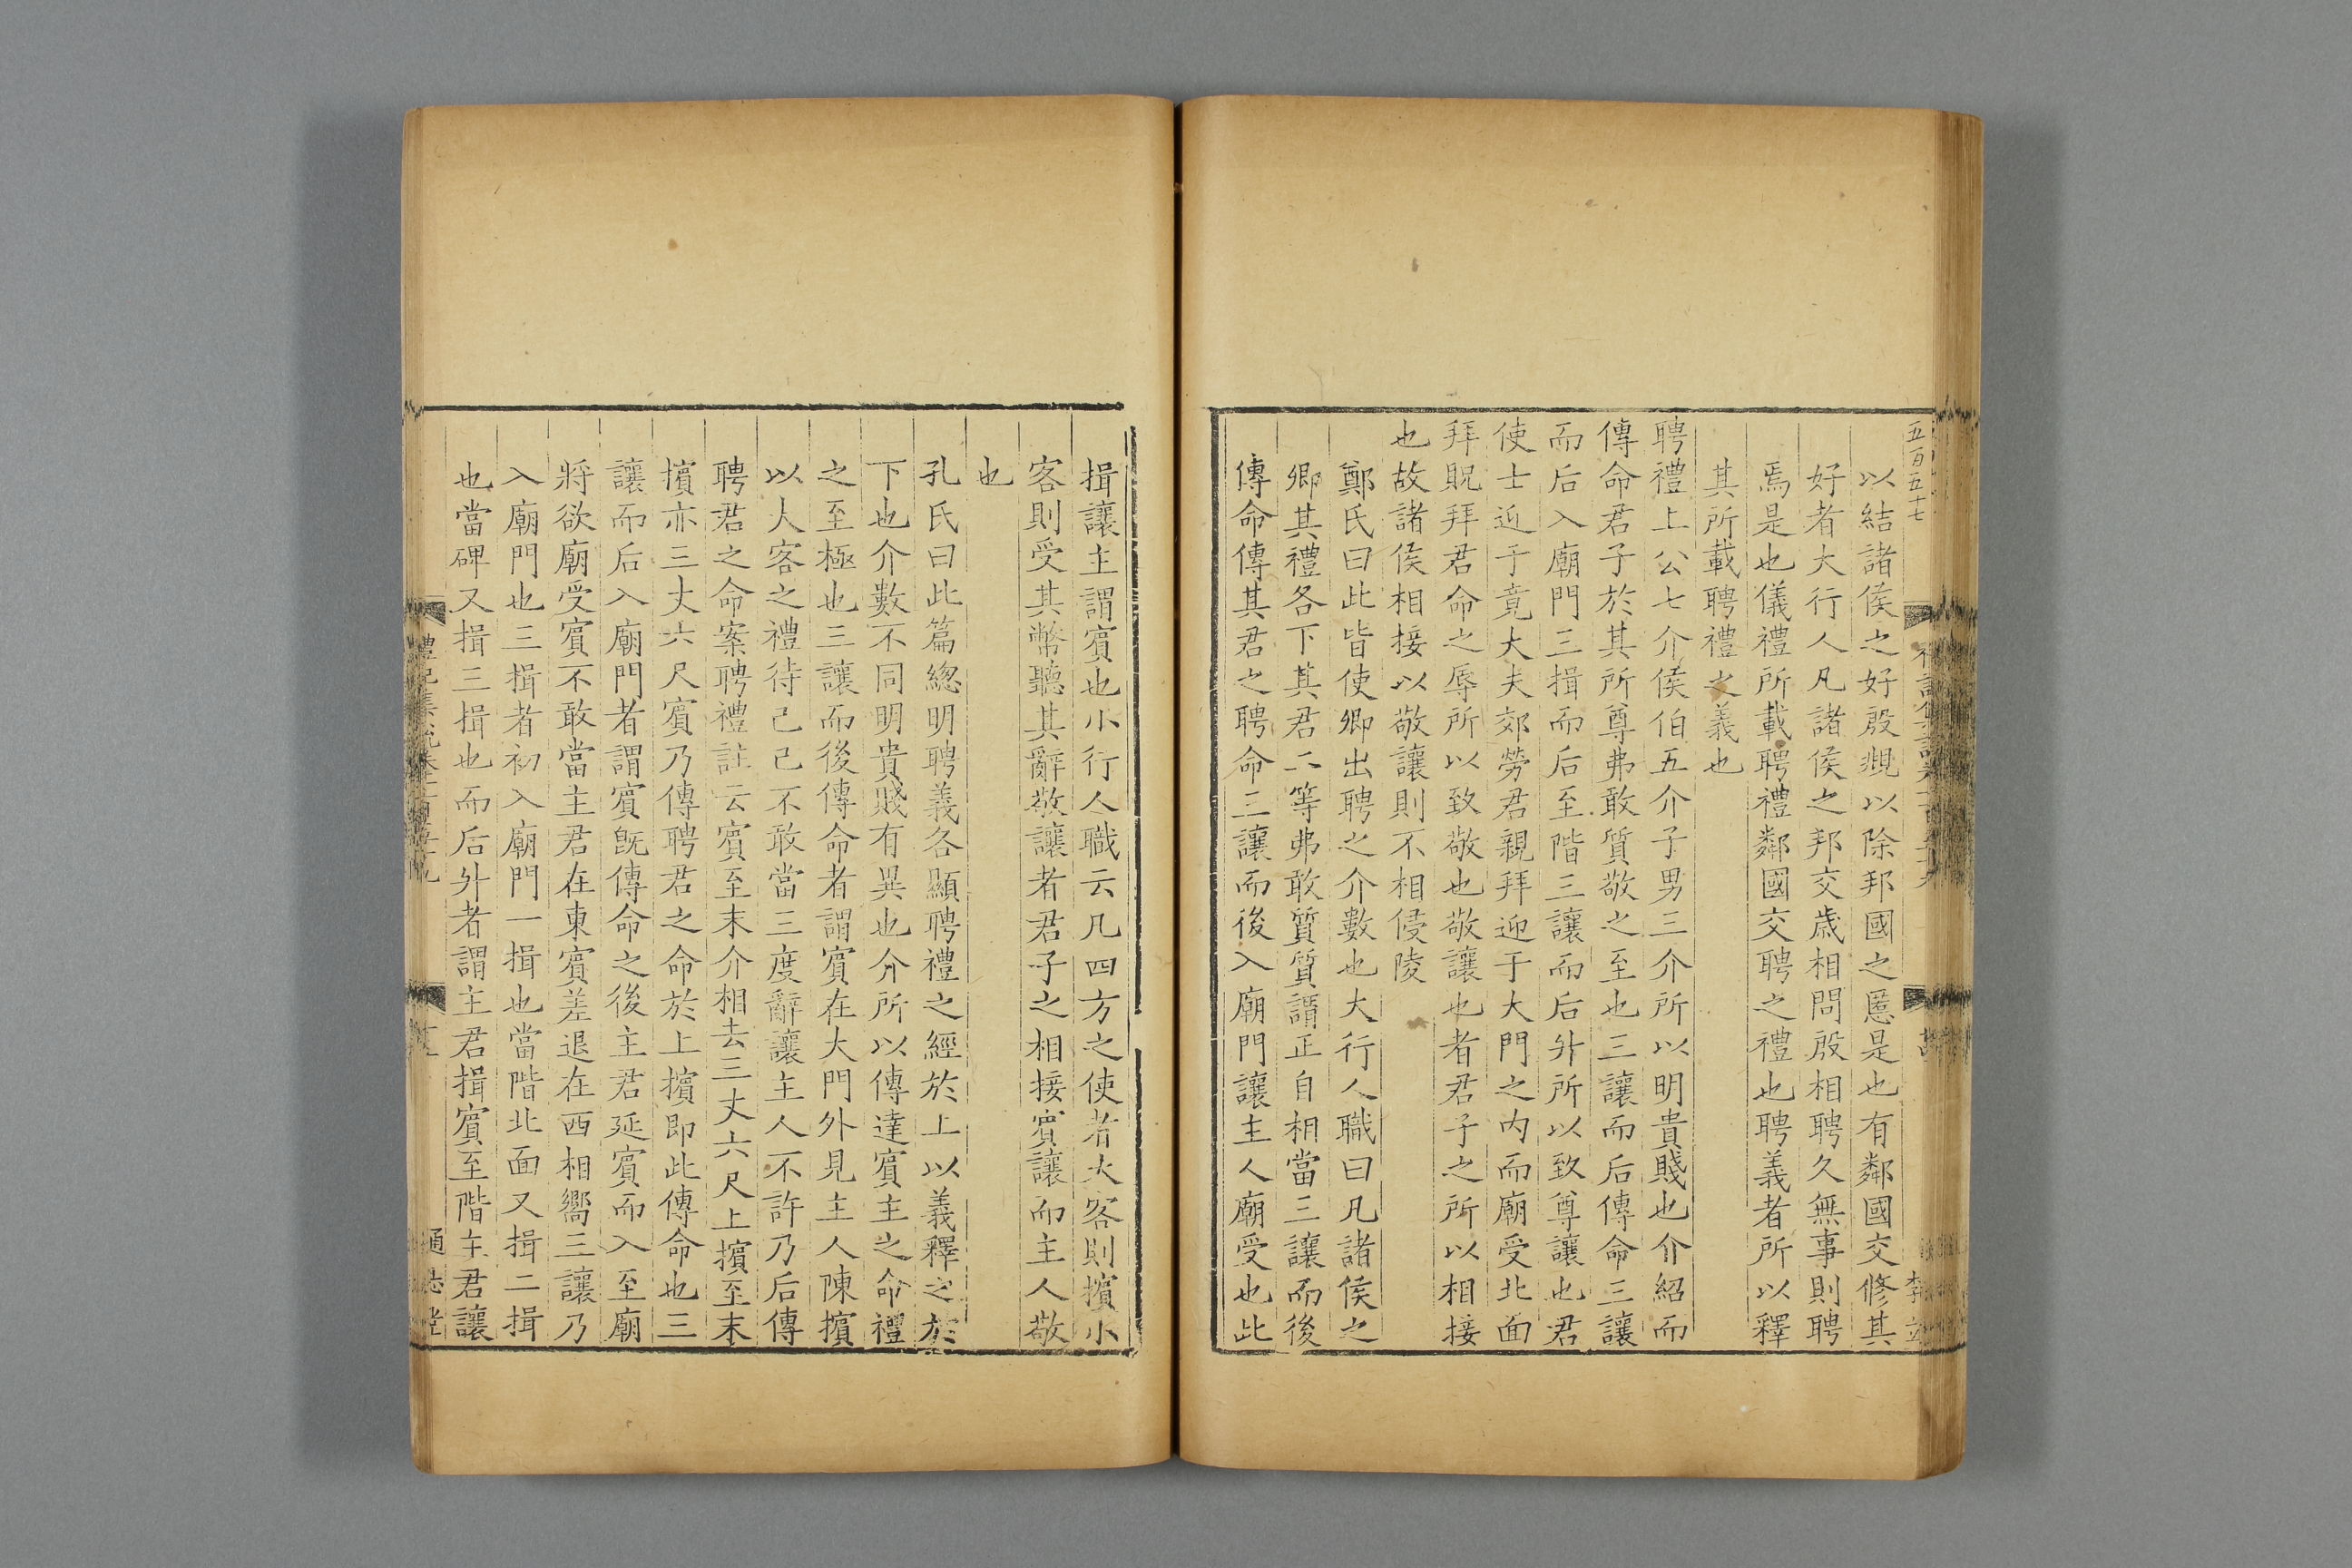 五百五十七
以結諸侯之好殷覜以除邦國之慝是也有鄰國交修其
好者大行人凡諸侯之邦交歲相問殷相聘久無事則聘
焉是也儀禮所載聘禮鄰國交聘之禮也聘義者所以釋
其所載聘禮之義也
聘禮上公七介侯伯五介子男三介所以明貴賤也介紹而
傳命君子於其所尊弗敢質敬之至也三讓而后傳命三讓
而后入廟門三揖而后至階三讓而后升所以致尊讓也君
使士迎于竟大夫郊勞君親拜迎于大門之内而廟受北面
拜貺拜君命之辱所以致敬也敬讓也者君子之所以相接
也故諸侯相接以敬讓則不相侵陵
鄭氏曰此皆使卿出聘之介數也大行人職曰凡諸侯之
卿其禮各下其君二等弗敢質質謂正自相當三讓而後
傳命傳其君之聘命三讓而後入廟門讓主人廟受也此
揖讓主謂賓也小行人職云凡四方之使者大客則擯小
客則受其幣聽其辭敬讓者君子之相接賓讓而主人敬
也
孔氏曰此篇總明聘義各顯聘禮之經於上以義釋之於
下也介數不同明貴賤有異也介所以傳達賓主之命禮
之至極也三讓而後傳命者謂賓在大門外見主人陳擯
以大客之禮待己己不敢當三度辭讓主人不許乃后傳
聘君之命案聘禮註云賓至末介相去三丈六尺上擯至末
擯亦三丈六尺賓乃傳聘君之命於上擯即此傳命也三
讓而后入廟門者謂賓旣傳命之後主君延賓而入至廟
將欲廟受賓不敢當主君在東賓差退在西相嚮三讓乃
入廟門也三揖者初入廟門一揖也當階北面又揖二揖
也當碑又揖三揖也而后升者謂主君揖賓至階主君讓
通志堂